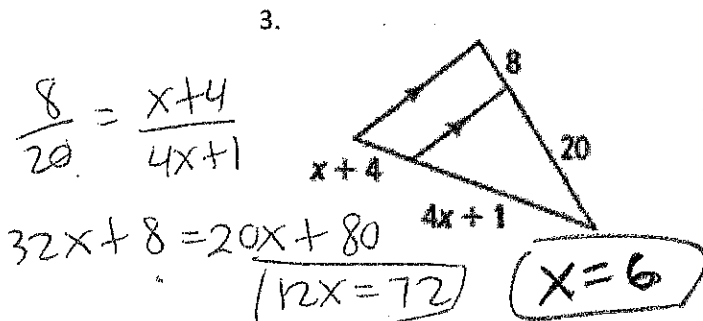 3.
8/20 = x+4/4x+1
8
20
x + 4
4x + 1
32x + 8 = 20x + 80
12x = 72
x = 6